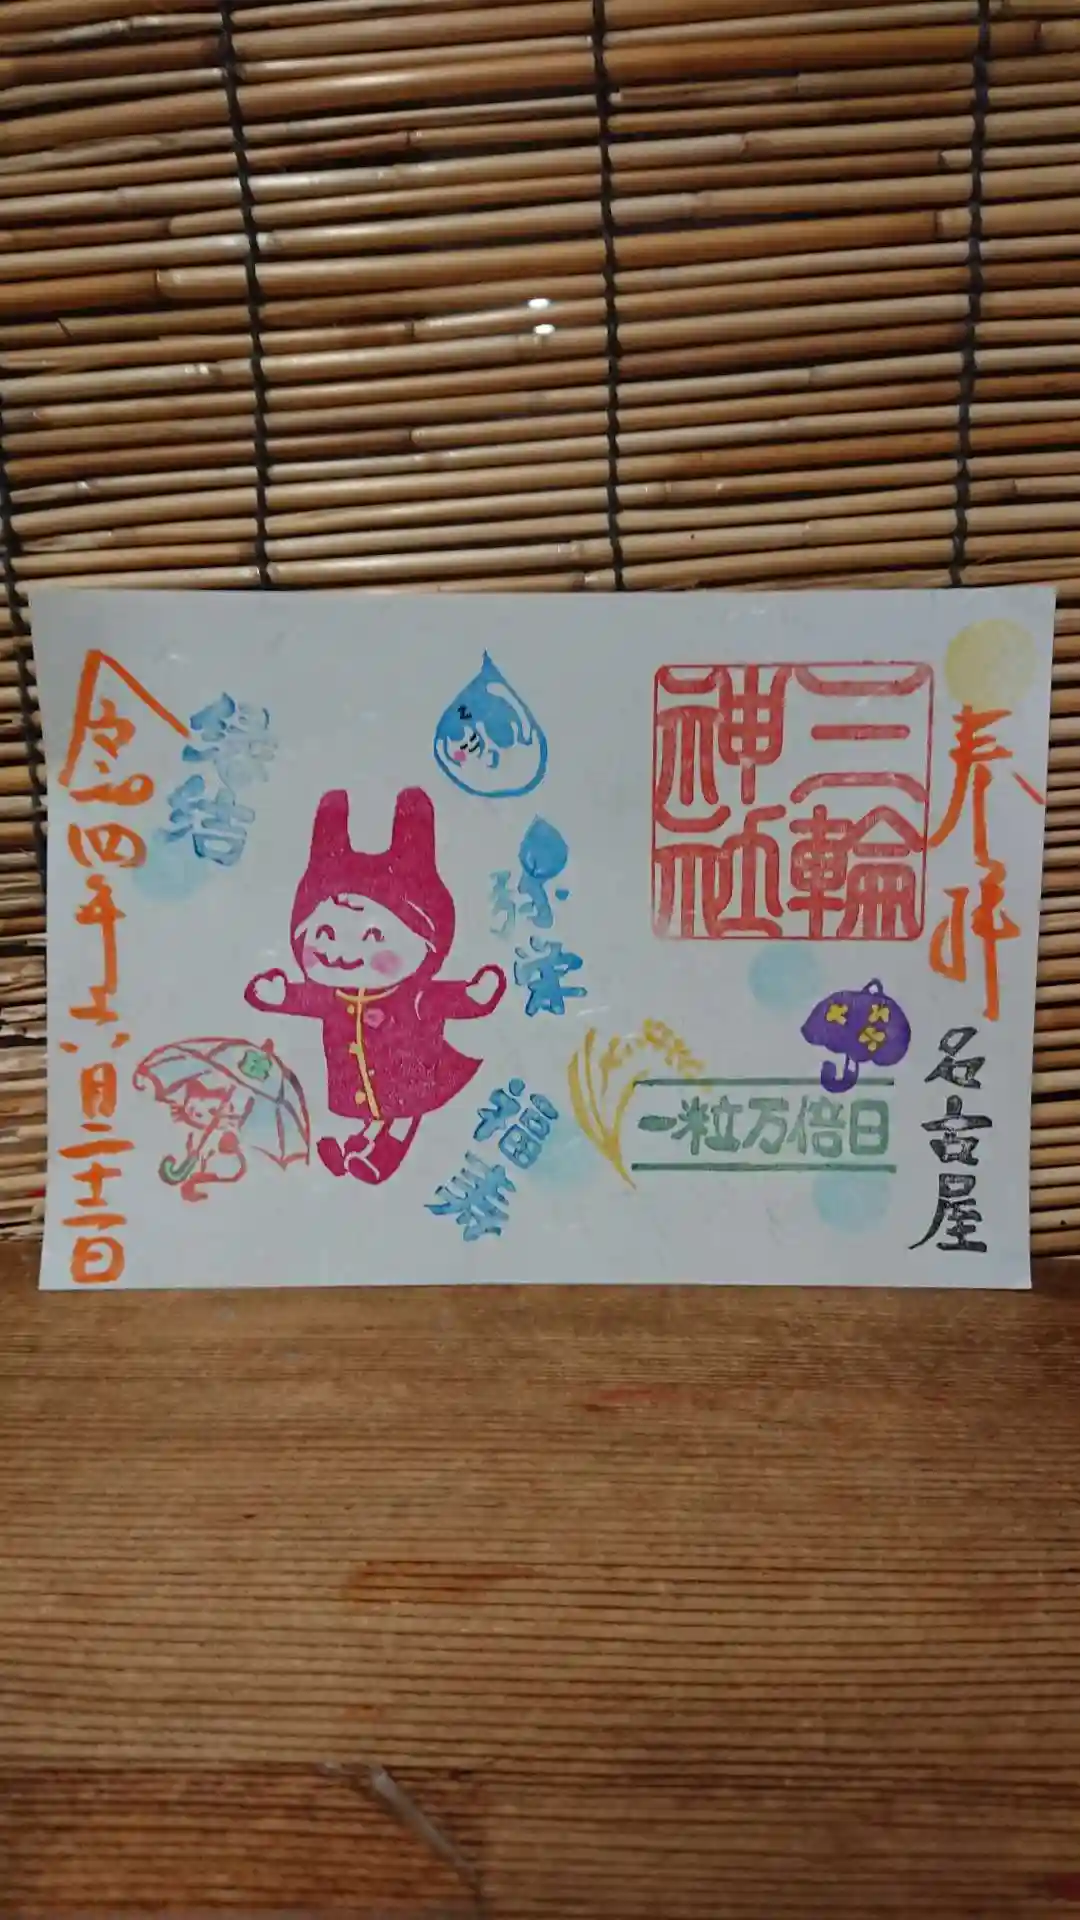 奉拝
名古屋
三輪
神社
一粒万倍日
弥栄
福寿
縁結
令和四年六月二十二日